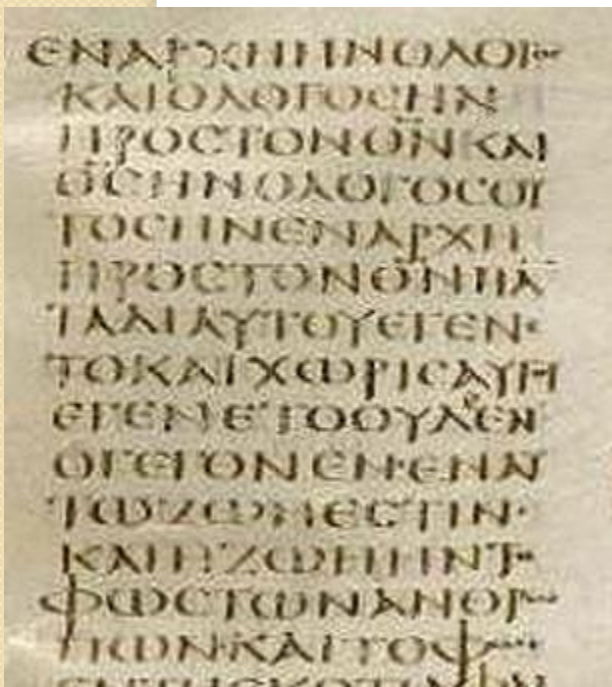 ΕΝΑΡΧΗΗΝΟΛΟΓΟϹ
ΚΑΙΟΛΟΓΟϹΗΝ
ΠΡΟϹΤΟΝΘ̅Ν̅ΚΑΙ
Θ̅Ϲ̅ΗΝΟΛΟΓΟϹΟΥ
ΤΟϹΗΝΕΝΑΡΧΗ
ΠΡΟϹΤΟΝΘ̅Ν̅ΠΑ
ΤΑΔΙΑΥΤΟΥΕΓΕΝΕ
ΤΟΚΑΙΧΩΡΙϹΑΥΤΟΥ
ΕΓΕΝΕΤΟΟΥΔΕΝ
ΟΓΕΓΟΝΕΝ·ΕΝΑΥ
ΤΩΖΩΗΕϹΤΙΝ·
ΚΑΙΗΖΩΗΗΝΤΟ
ΦΩϹΤΩΝΑΝΘΡΩ
ΠΩΝ·ΚΑΙΤΟΦΩϹ